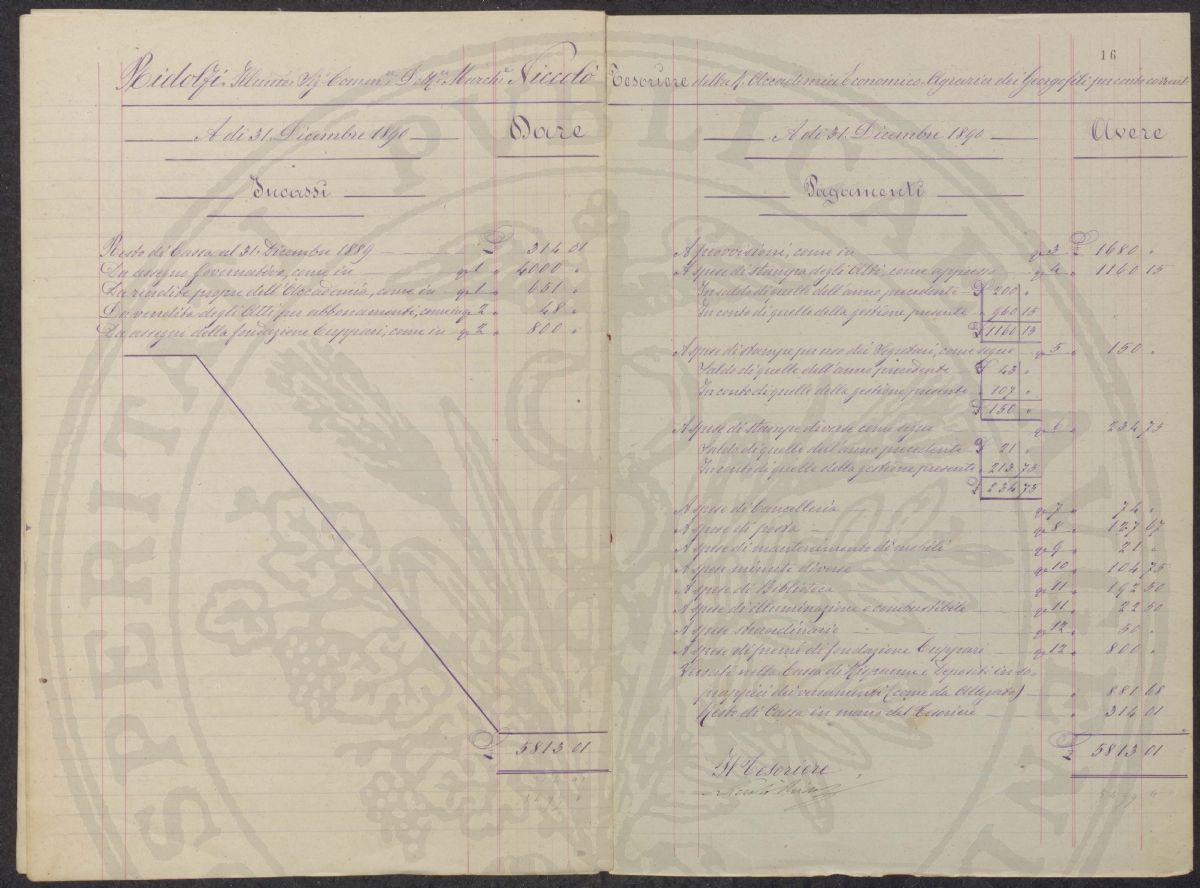 Ridolfi Illmo Sig. Comm. March. Niccolò
A dì 31. Dicembre 1890 Dare
Incassi
Resto di Cassa al 31. Dicembre 1889 £ 314 01
Da assegno Governativo, come in q 1 " 4000 "
Da rendite proprie dell'Accademia, come in q 1 " 651 "
Da vendita degli Atti per abbonamenti, come in q 2 " 48 "
Da assegni della fondazione Cuppari, come in q 2 " 800 "
£ 5813 01
16
Tesoriere della R. Accademia Economico-Agraria dei Georgofili per conto corrent
A dì 31. Dicembre 1890 Avere
Pagamenti
A provvisioni, come in q 3 £ 1680 "
A spese di stampa degli Atti come appresso q 4 " 1160 15
In saldo di quelle dell'anno precedente £ 200 "
In conto di quelle della gestione presente " 960 15
£ 1160 15
A spese di stampe per uso dei Segretari, come segue q 5 " 150 "
Saldo di quelle dell'anno precedente £ 43 "
In conto di quelle della gestione presente " 107 "
£ 150 "
A spese di stampe diverse come segue q 6 " 234 75
Saldo di quelle dell'anno precedente £ 21 "
In conto di quelle della gestione presente " 213 75
£ 234 75
A spese di Cancelleria q 7 " 74 "
A spese di posta q 8 " 127 67
A spese di mantenimento di mobili q 9 " 21 "
A spese minute diverse q 10 " 104 75
A spese di Biblioteca q 11 " 192 50
A spese di illuminazione e combustibile q 11 " 22 50
A spese straordinarie q 12 " 50 "
A spese di premi di fondazione Cuppari q 12 " 800 "
Versati nella Cassa di Risparmi e Depositi in
dei versamenti (come da Allegato) " 881 68
Resto di Cassa in mano del Tesoriere " 314 01
£ 5813 01
Il Tesoriere